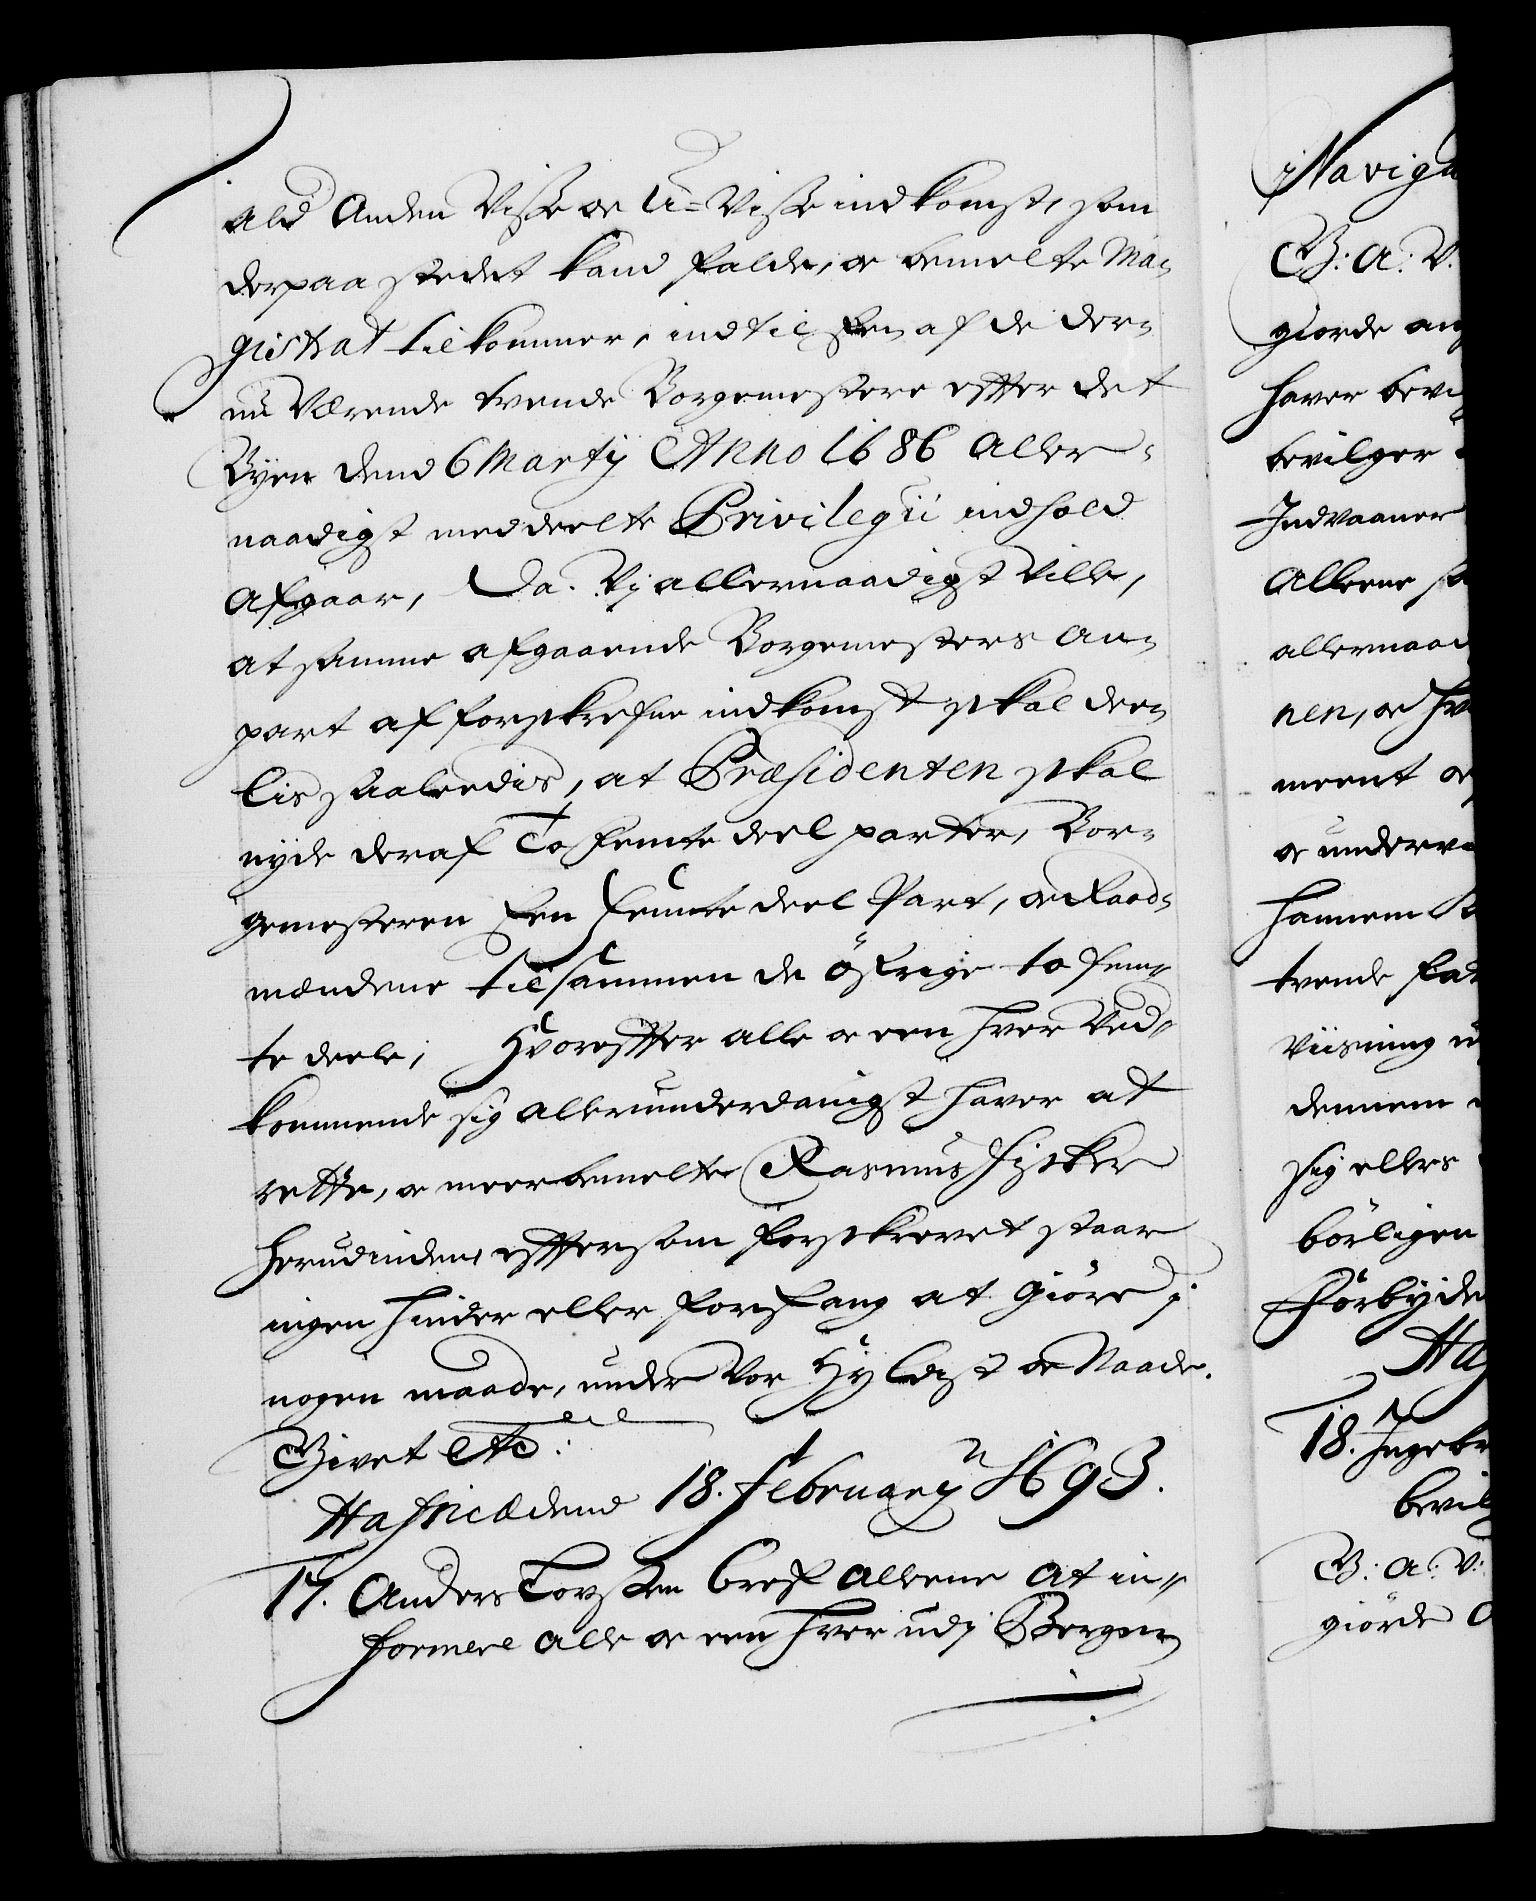 ald Anden Visse oc U-Visse indkomst, som
derpaa stedet kand falde, oc bemelte Ma-
gistrat tilkommer, indtil Een af de der-
nu Værende trende Borgemestere effter det
Byen dend 6 Martij Anno 1686 Aller-
naadigst meddeelte Privilegii indhold
afgaar, Da Vj allernaadigst Ville,
at samme afgaaende Borgemesters An-
part af forskrefne indkomst skal dee-
lis saaledis, at Præsidenten skal
nyde deraf To femte deel parter, Bor-
gemesteren Een femte deel Part, oc Raad-
mændene tilsammen de öfrige to fem-
te deele; Hvoreffter alle oc een hver Ved-
kommende sig allerunderdanigst haver at
rette, oc meerbemelte Rasmus Fisker
herudinden, efftersom forskrevet staar
ingen hinder eller forfang at giöre j
nogen maade, under Vor Hyldist oc Naade.
Givet etc:
Hafniæ dend 18. februarij 1693.
17. Anders Torsten bref alleene at in-
formere alle oc een hver udj Bergen
Naviga
G: A: V.
giorde an
haver bevi
bevilger
Indvaaner
Alleene
allernaad
nen, oc hv
meent
oc underv
hannem
trende
Viisning
dennem
sig ellers
börligen
Forbyde
Haf
18. Ingebr
bevil
G: A: V:
giörde